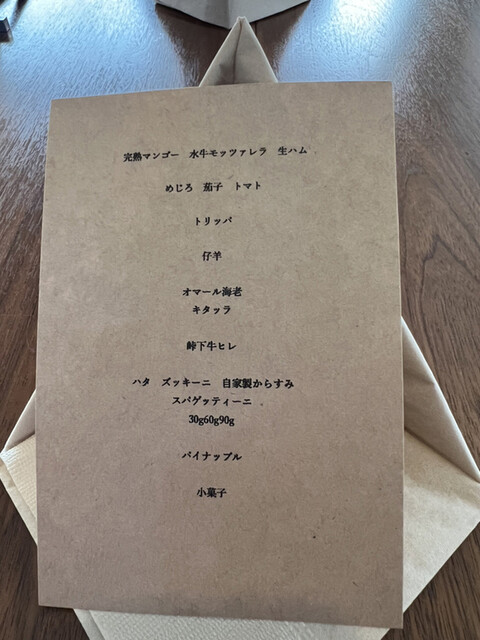 完熟マンゴー　水牛モッツァレラ　生ハム
めじろ　茄子　トマト
トリッパ
仔羊
オマール海老
キタッラ
峠下牛ヒレ
ハタ　ズッキーニ　自家製からすみ
スパゲッティーニ
30g60g90g
パイナップル
小菓子